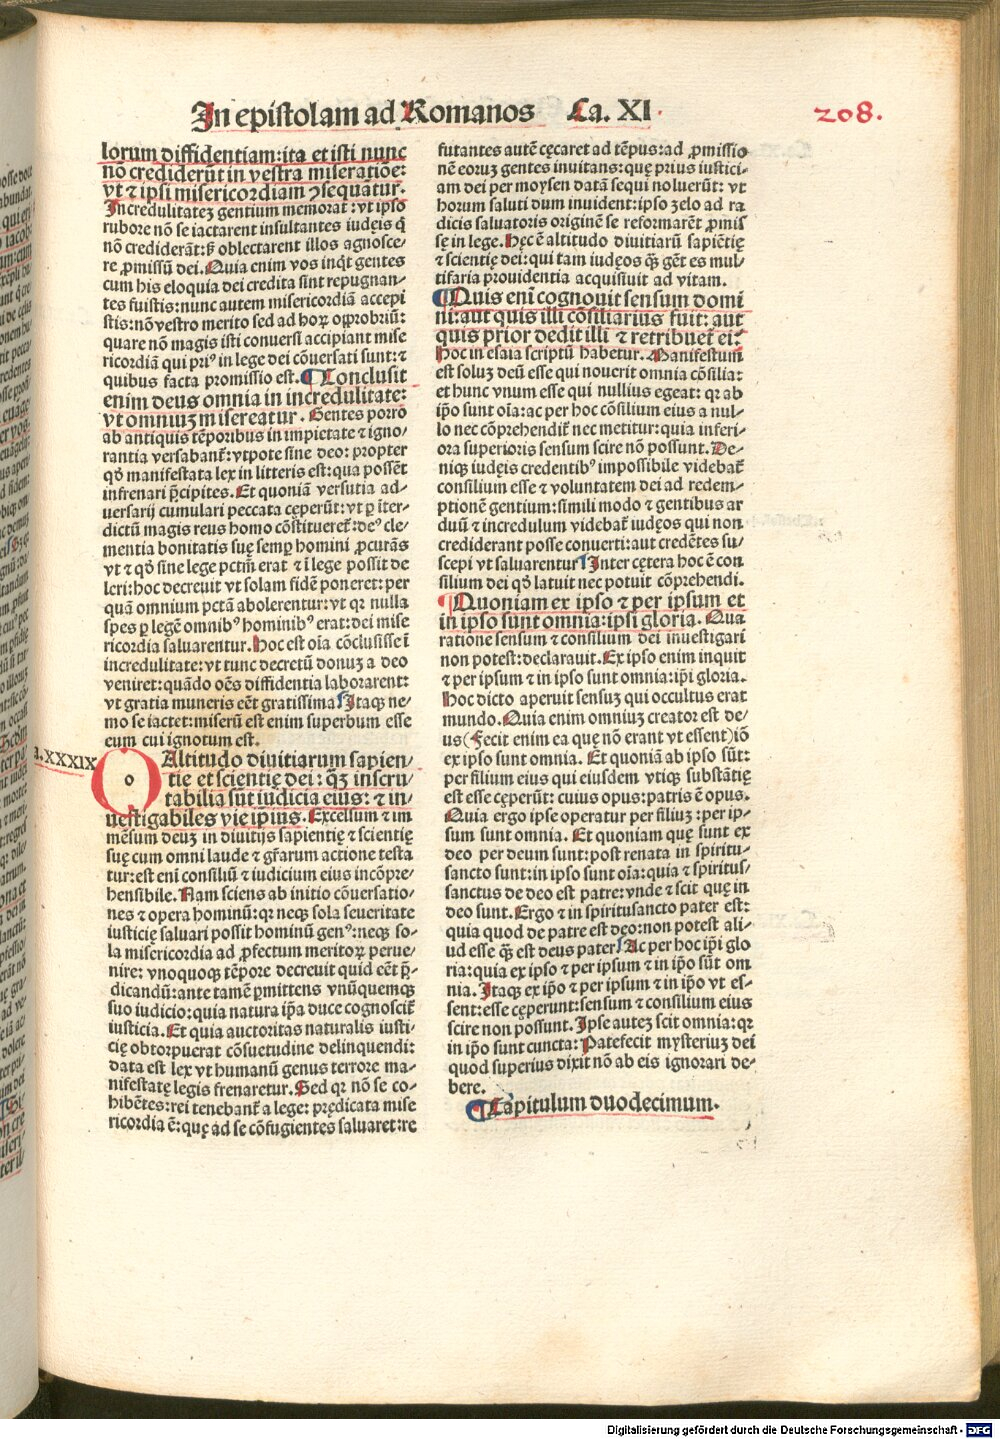 In epistolam ad Romanos Ca. XI.
208.
lorum diffidentiam: ita et isti nunc
nõ crediderũt in vestra miseratiõe:
vt ⁊ ipsi misericordiam ꝯsequatur.
Incredulitateꝫ gentium memorat: vt ipso
rubore nõ se iactarent insultantes iudęis q̃
nõ crediderãt: sꝫ oblectarent illos agnosce-
re ꝓmissũ dei. Quia enim vos inq̃t gentes
cum his eloquia dei credita sint repugnan-
tes fuistis: nunc autem misericordiã accepi
stis: nõ vestro merito sed ad hoꝝ opprobriũ:
quare nõ magis isti conuersi accipiant mise
ricordiã qui priꝰ in lege dei cõuersati sunt: ⁊
quibus facta promissio est. ¶ Conclusit
enim deus omnia in incredulitate:
vt omniuꝫ misereatur. Gentes porro
ab antiquis tẽporibus in impietate ⁊ igno-
rantia versabantꝰ: vtpote sine deo: propter
qđ manifestata lex in litteris est: qua possẽt
infrenari p̃cipites. Et quoniã versutia ad-
uersarij cumulari peccata cęperũt: vt ꝑ ĩter-
dictũ magis reus homo cõstitueret̃: deꝰ cle-
mentia bonitatis suę semꝑ homini ꝓcurãs
vt ⁊ qđ sine lege pctm̃ erat ⁊ ĩ lege possit de
leri: hoc decreuit vt solam fidẽ poneret: per
quã omnium pctã abolerentur: vt qꝛ nulla
spes ꝑ legẽ omnibꝰ hominibꝰ erat: dei mise
ricordia saluarentur. Hoc est oĩa cõclusisse ĩ
incredulitate: vt tunc decretũ donuꝫ a deo
veniret: quãdo oẽs diffidentia laborarent:
vt gratia muneris eẽt gratissima. Itaqꝫ ne-
mo se iactet: miserũ est enim superbum esse
eum cui ignotum est.
a. XXXIX
O Altitudo diuitiarum sapien-
tie et scientię dei: q̃ꝫ inscru-
tabilia sũt iudicia eius: ⁊ in-
uestigabiles vię ip̃ius. Excelsum ⁊ im
mẽsum deuꝫ in diuitijs sapientię ⁊ scientię
suę cum omni laude ⁊ gr̃arum actione testa
tur: est eni consiliũ ⁊ iudicium eius incõpre-
hensibile. Nam sciens ab initio cõuersatio-
nes ⁊ opera hominũ: qꝛ neqꝫ sola seueritate
iusticię saluari possit hominũ genꝰ: neqꝫ so-
la misericordia ad ꝓfectum meritoꝝ perue-
nire: vnoquoqꝫ tẽpore decreuit quid eẽt p̃-
dicandũ: ante tamẽ ꝑmittens vnũquemqꝫ
suo iudicio: quia natura ip̃a duce cognoscit̃
iusticia. Et quia auctoritas naturalis iusti-
cię obtorpuerat cõsuetudine delinquendi:
data est lex vt humanũ genus terrore ma-
nifestatę legis frenaretur. Sed qꝛ nõ se co-
hibẽtes: rei tenebant̃ a lege: prędicata mise
ricordia ẽ: quę ad se cõfugientes saluaret: re
futantes autẽ cęcaret ad tẽpus: ad ꝓmissio
nẽ eoruꝫ gentes inuitans: quę prius iustici-
am dei per moysen datã sequi noluerũt: vt
horum saluti dum inuident: ipso zelo ad ra
dicis saluatoris originẽ se reformarẽt ꝓmis
sę in lege. Hęc ẽ altitudo diuitiarũ sapiẽtię
⁊ scientię dei: qui tam iudęos qꝫ̃ gẽt es mul-
tifaria prouidentia acquisiuit ad vitam.
¶ Quis eni cognouit sensum domi
ni: aut quis illi cõsiliarius fuit: aut
quis prior dedit illi ⁊ retribuet̃ ei:
Hoc in esaia scriptũ habetur. Manifestum
est soluꝫ deũ esse qui nouerit omnia cõsilia:
et hunc vnum esse qui nullius egeat: qꝛ ab
ip̃o sunt oĩa: ac per hoc cõsilium eius a nul-
lo nec cõprehendit̃ nec metitur: quia inferi-
ora superioris sensum scire nõ possunt. De-
niqꝫ iudęis credentibꝰ impossibile videbat̃
consilium esse ⁊ voluntatem dei ad redem-
ptionẽ gentium: simili modo ⁊ gentibus ar
duũ ⁊ incredulum videbat̃ iudęos qui non
crediderant posse conuerti: aut credẽtes su-
scepi vt saluarentur. Inter cętera hoc ẽ con
silium dei qđ latuit nec potuit cõprehendi.
¶ Quoniam ex ipso ⁊ per ipsum et
in ipso sunt omnia: ipsi gloria. Qua
ratione sensum ⁊ consilium dei inuestigari
non potest: declarauit. Ex ipso enim inquit
⁊ per ipsum ⁊ in ipso sunt omnia: ip̃i gloria.
Hoc dicto aperuit sensuꝫ qui occultus erat
mundo. Quia enim omniuꝫ creator est de-
us (fecit enim ea quę nõ erant vt essent) iõ
ex ipso sunt omnia. Et quoniã ab ipso sũt:
per filium eius qui eiusdem vtiqꝫ substãtię
est esse cęperũt: cuius opus: patris ẽ opus.
Quia ergo ipse operatur per filiuꝫ: per ip-
sum sunt omnia. Et quoniam quę sunt ex
deo per deum sunt: post renata in spiritu-
sancto sunt: in ipso sunt oĩa: quia ⁊ spiritus-
sanctus de deo est patre: vnde ⁊ scit quę in
deo sunt. Ergo ⁊ in spiritusancto pater est:
quia quod de patre est deo: non potest ali-
ud esse qꝫ̃ est deus pater. Ac per hoc ip̃i glo
ria: quia ex ipso ⁊ per ipsum ⁊ in ip̃o sũt om
nia. Itaqꝫ ex ip̃o ⁊ per ipsum ⁊ in ip̃o vt es-
sent: esse cęperunt: sensum ⁊ consilium eius
scire non possunt. Ipse auteꝫ scit omnia: qꝛ
in ip̃o sunt cuncta: Patefecit mysteriuꝫ dei
quod superius dixit nõ ab eis ignorari de-
bere.
¶ Capitulum duodecimum.
Digitalisierung gefördert durch die Deutsche Forschungsgemeinschaft - DFG